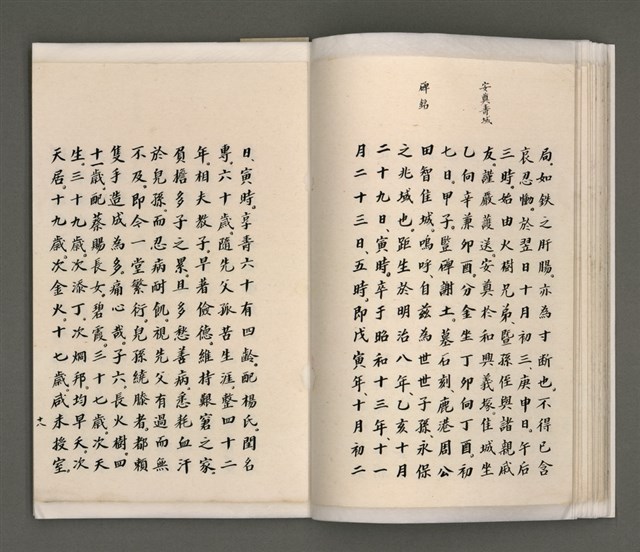 安奠壽城
碑銘
局。如鉄之肝腸。亦為寸断也。不得已含
哀忍慟。於翌日十月初三、庚申日、午后
三時。始由火樹兄弟。曁孫侄與諸親戚
友。謹嚴護送。安奠於和興義塚。佳城坐
乙向辛兼卯酉分金坐丁卯向丁酉。初
七日。甲子。豎碑謝土。墓石刻鹿港周公
田智佳城。嗚呼自茲為世世子孫永保
之兆城也。距生於明治八年、乙亥十月
二十九日、寅時。卒于昭和十三年、十一
月二十三日、五時。即戊寅年、十月初二
日、寅時。享壽六十有四齡。配楊氏。閏名
專。六十歲。隨先父孤苦生涯。整四十二
年。相夫教子。早著儉德。維持艱窘之家。
負擔多子之累。且多愁善病。悉耗血汗
於兒孫。而忍病耐飢。視先父有過而無
不及。即令一堂繁衍。兒孫繞膝者。都賴
隻手造成為多。痛心哉。子六、長火樹。四
十一歲。配蔡賜長女。碧霞。三十七歲。次天
生。三十九歲。次添丁。次炯邦。均早夭。次
天居。十九歲。次金火。十七歲。咸未授室。
十八